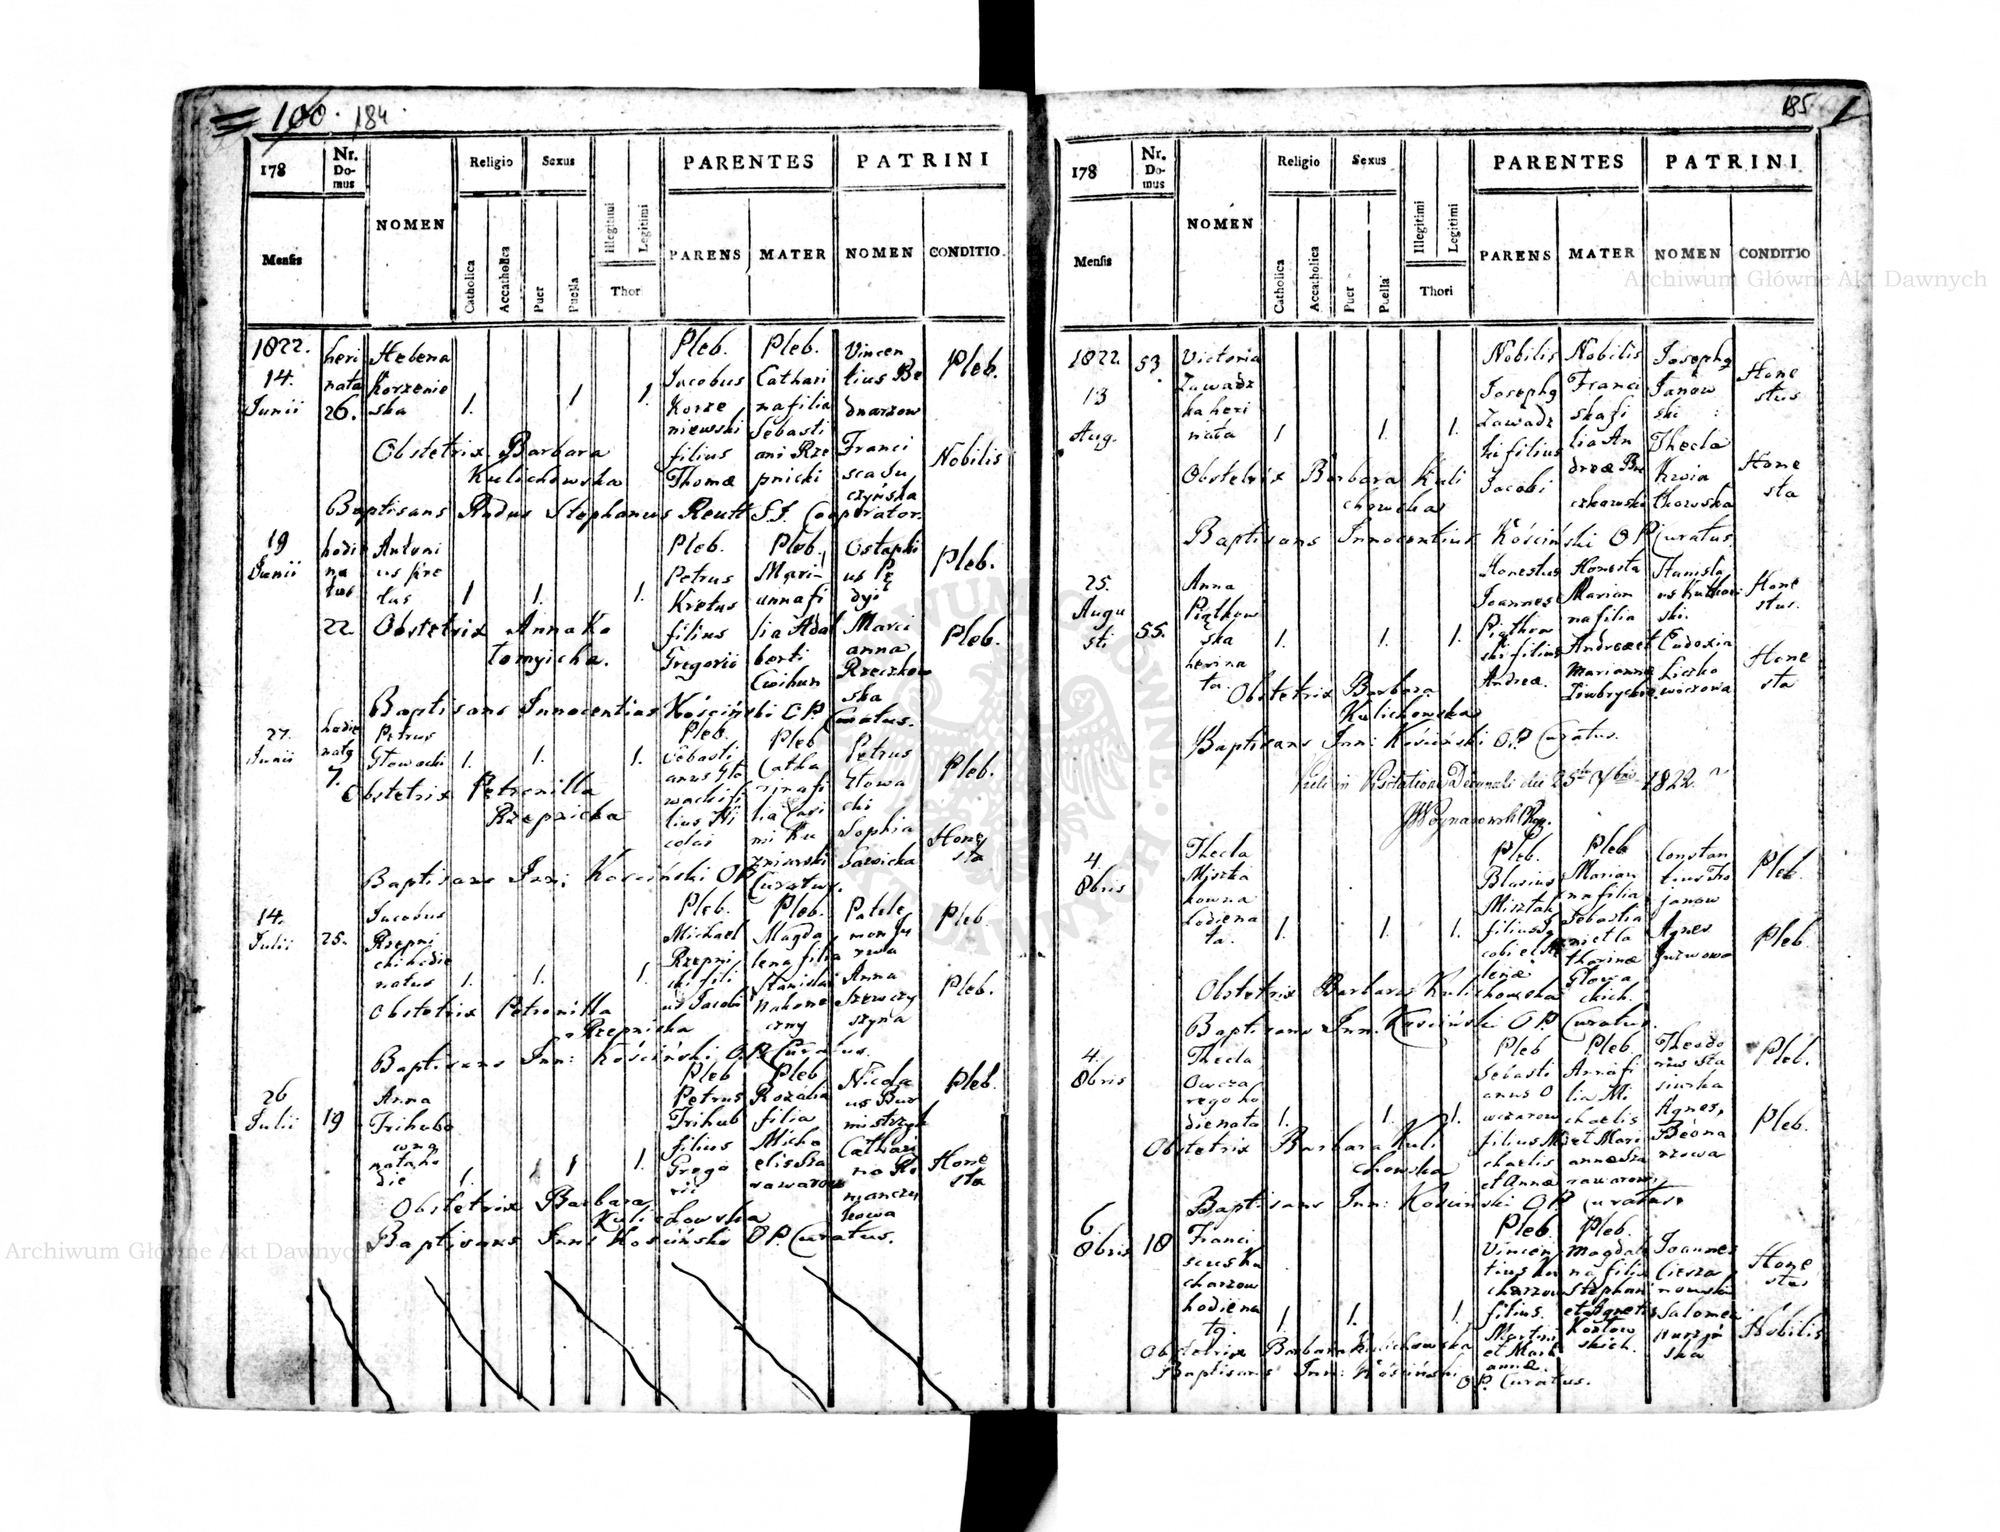 100. 184.
178
Nr. Domus
NOMEN
Religio
Sexus
PARENTES
PATRINI
Mensis
Catholica
Accatholica
Puer
Puella
Illegitimi
Legitimi
Thori
PARENS
MATER
NOMEN
CONDITIO.
1822.
14.
Junii
heri
nata
26.
Helena
Korzenie
ska
1.
1
1.
Pleb.
Jacobus
Korze
niewski
filius
Thomæ
Pleb.
Cathari
na filia
Sebasti
ani Rze
pnicki
Vincen
tius Be
dnarzow
Franci
sca Su
czyńska
Pleb.
Nobilis
Obstetrix Barbara
Kulichowska
Baptisans Rndus Stephanus Reutt S.J. Cooperator.
19
Junii
hodie
na
tus
22
Antoni
us Kre
tus
1
1.
1.
Pleb.
Petrus
Kretus
filius
Gregorii
Pleb.
Mari
anna fi
lia Adal
berti
Cwihun
Ostaphi
us
Marci
anna
Rzeczkow
ska
Pleb.
Pleb.
Obstetrix Anna Ko
tomyicha.
Baptisans Innocentius Kościński O.P. Curatus.
27.
Junii
hodie
natg
7.
Petrus
Głowacki
1.
1.
1.
Pleb.
Sebasti
anus Gło
wacki fi
lius Ni
colai
Pleb
Catha
rina fi
lia Casi
mi Ku
zniarski
Petrus
Głowa
cki
Sophia
Sawicka
Pleb.
Hone
sta
Obstetrix Petronilla
Rzepnicka
Baptisans Inn: Kościński OP. Curatus.
14.
Julii
25.
Jacobus
Rzepni
cki hodie
natus
1.
1.
1.
Pleb.
Michael
Rzepni
cki fili
us Jacobi
Pleb.
Magda
lena filia
Stanislai
Nakone
czny
Anna
Szewczy
szyna
Pleb.
Pleb.
Obstetrix Petronilla
Rzepnicka
Baptisans Inn: Kościński O.P. Curatus.
26
Julii
19
Anna
Trihubo
wna
nata ho
die
1.
1
1.
Pleb
Petrus
Trihub
filius
Grego
rii
Pleb
Rozalia
filia
Micha
elis Sza
rawarow
Nicola
us Bur
mistrzyk
Cathari
na Ro
manczu
kowa
Pleb.
Hone
sta
Obstetrix Barbara
Kulichowska
Baptisans Inn: Kościński OP. Curatus.
185
178
Nr. Domus
NOMEN
Religio
Sexus
PARENTES
PATRINI
Mensis
Catholica
Accatholica
Puer
Puella
Illegitimi
Legitimi
Thori
PARENS
MATER
NOMEN
CONDITIO
1822.
13
Aug.
53.
Victoria
Zawadz
ka heri
nata
1
1.
1.
Nobilis
Josephg
Zawadz
ki filius
Jacobi
Nobilis
Franci
ska fi
lia An
dreæ Bu
czkowski
Josephg
Janow
ski
Thecla
Kwia
tkowska
Hone
stus
Hone
sta
Obstetrix Barbara Kuli
chowska
Baptisans Innocentius Kościński OP Curatus
25.
Augu
sti
55.
Anna
Piątkow
ska
heri na
ta.
1.
1.
1.
Honestus
Joannes
Piątkow
ski filius
Andreæ.
Honesta
Marian
na filia
Andreæ et
Mariannæ
Stanisla
us
ski.
Eudoxia
Liczko
wiczowa
Hone
stus.
Hone
sta
Obstetrix Barbara
Kulichowska
Baptisans Inn: Kościński O.P. Curatus.
Vidi in Visitatione Decanali die 25ta 7bris 1822.
4.
8bris
Thecla
Miszta
kowna
hodie na
ta.
1.
1.
1.
Pleb.
Blasius
Misztak
filius Ja
cobi et He
lenæ
Pleb
Marian
na filia
Sebastia
ni et Ca
tharinæ
Głowa
ckich.
Constan
tius Tro
janow
Agnes
Pleb.
Pleb.
Obstetrix Barbara Kulichowska
Baptisans Inn. Kościński O.P. Curatus.
4.
8bris
Thecla
Owcza
rogo ho
die nata
1.
1.
1.
Pleb
Sebasti
anus O
wczarow
filius Mi
chaelis
et Annæ
Pleb.
Anna fi
lia Mi
chaelis
et Mari
annæ Sza
rawarow
Theodo
rus Sta
siurka
Agnes
Pleb.
Pleb.
Obstetrix Barbara Kuli
chowska
Baptisans Inn: Kościński O.P. Curatus.
6.
8bris
18
Franci
scus Ku
charzow
hodie na
tg.
1.
1.
1.
Pleb.
Vincen
tius Ku
charzow
filius.
Martini
et Mari
annæ.
Pleb.
Magdale
na filia
Stephani
et Agnetis
Kozłow
skich.
Joannes
Ciesza
nowski
Salomea
Hone
stus
Nobilis
Obstetrix Barbara Kulichowska
Baptisans Inn: Kościński
O.P. Curatus.
Archiwum Główne Akt Dawnych
Archiwum Główne Akt Dawnych